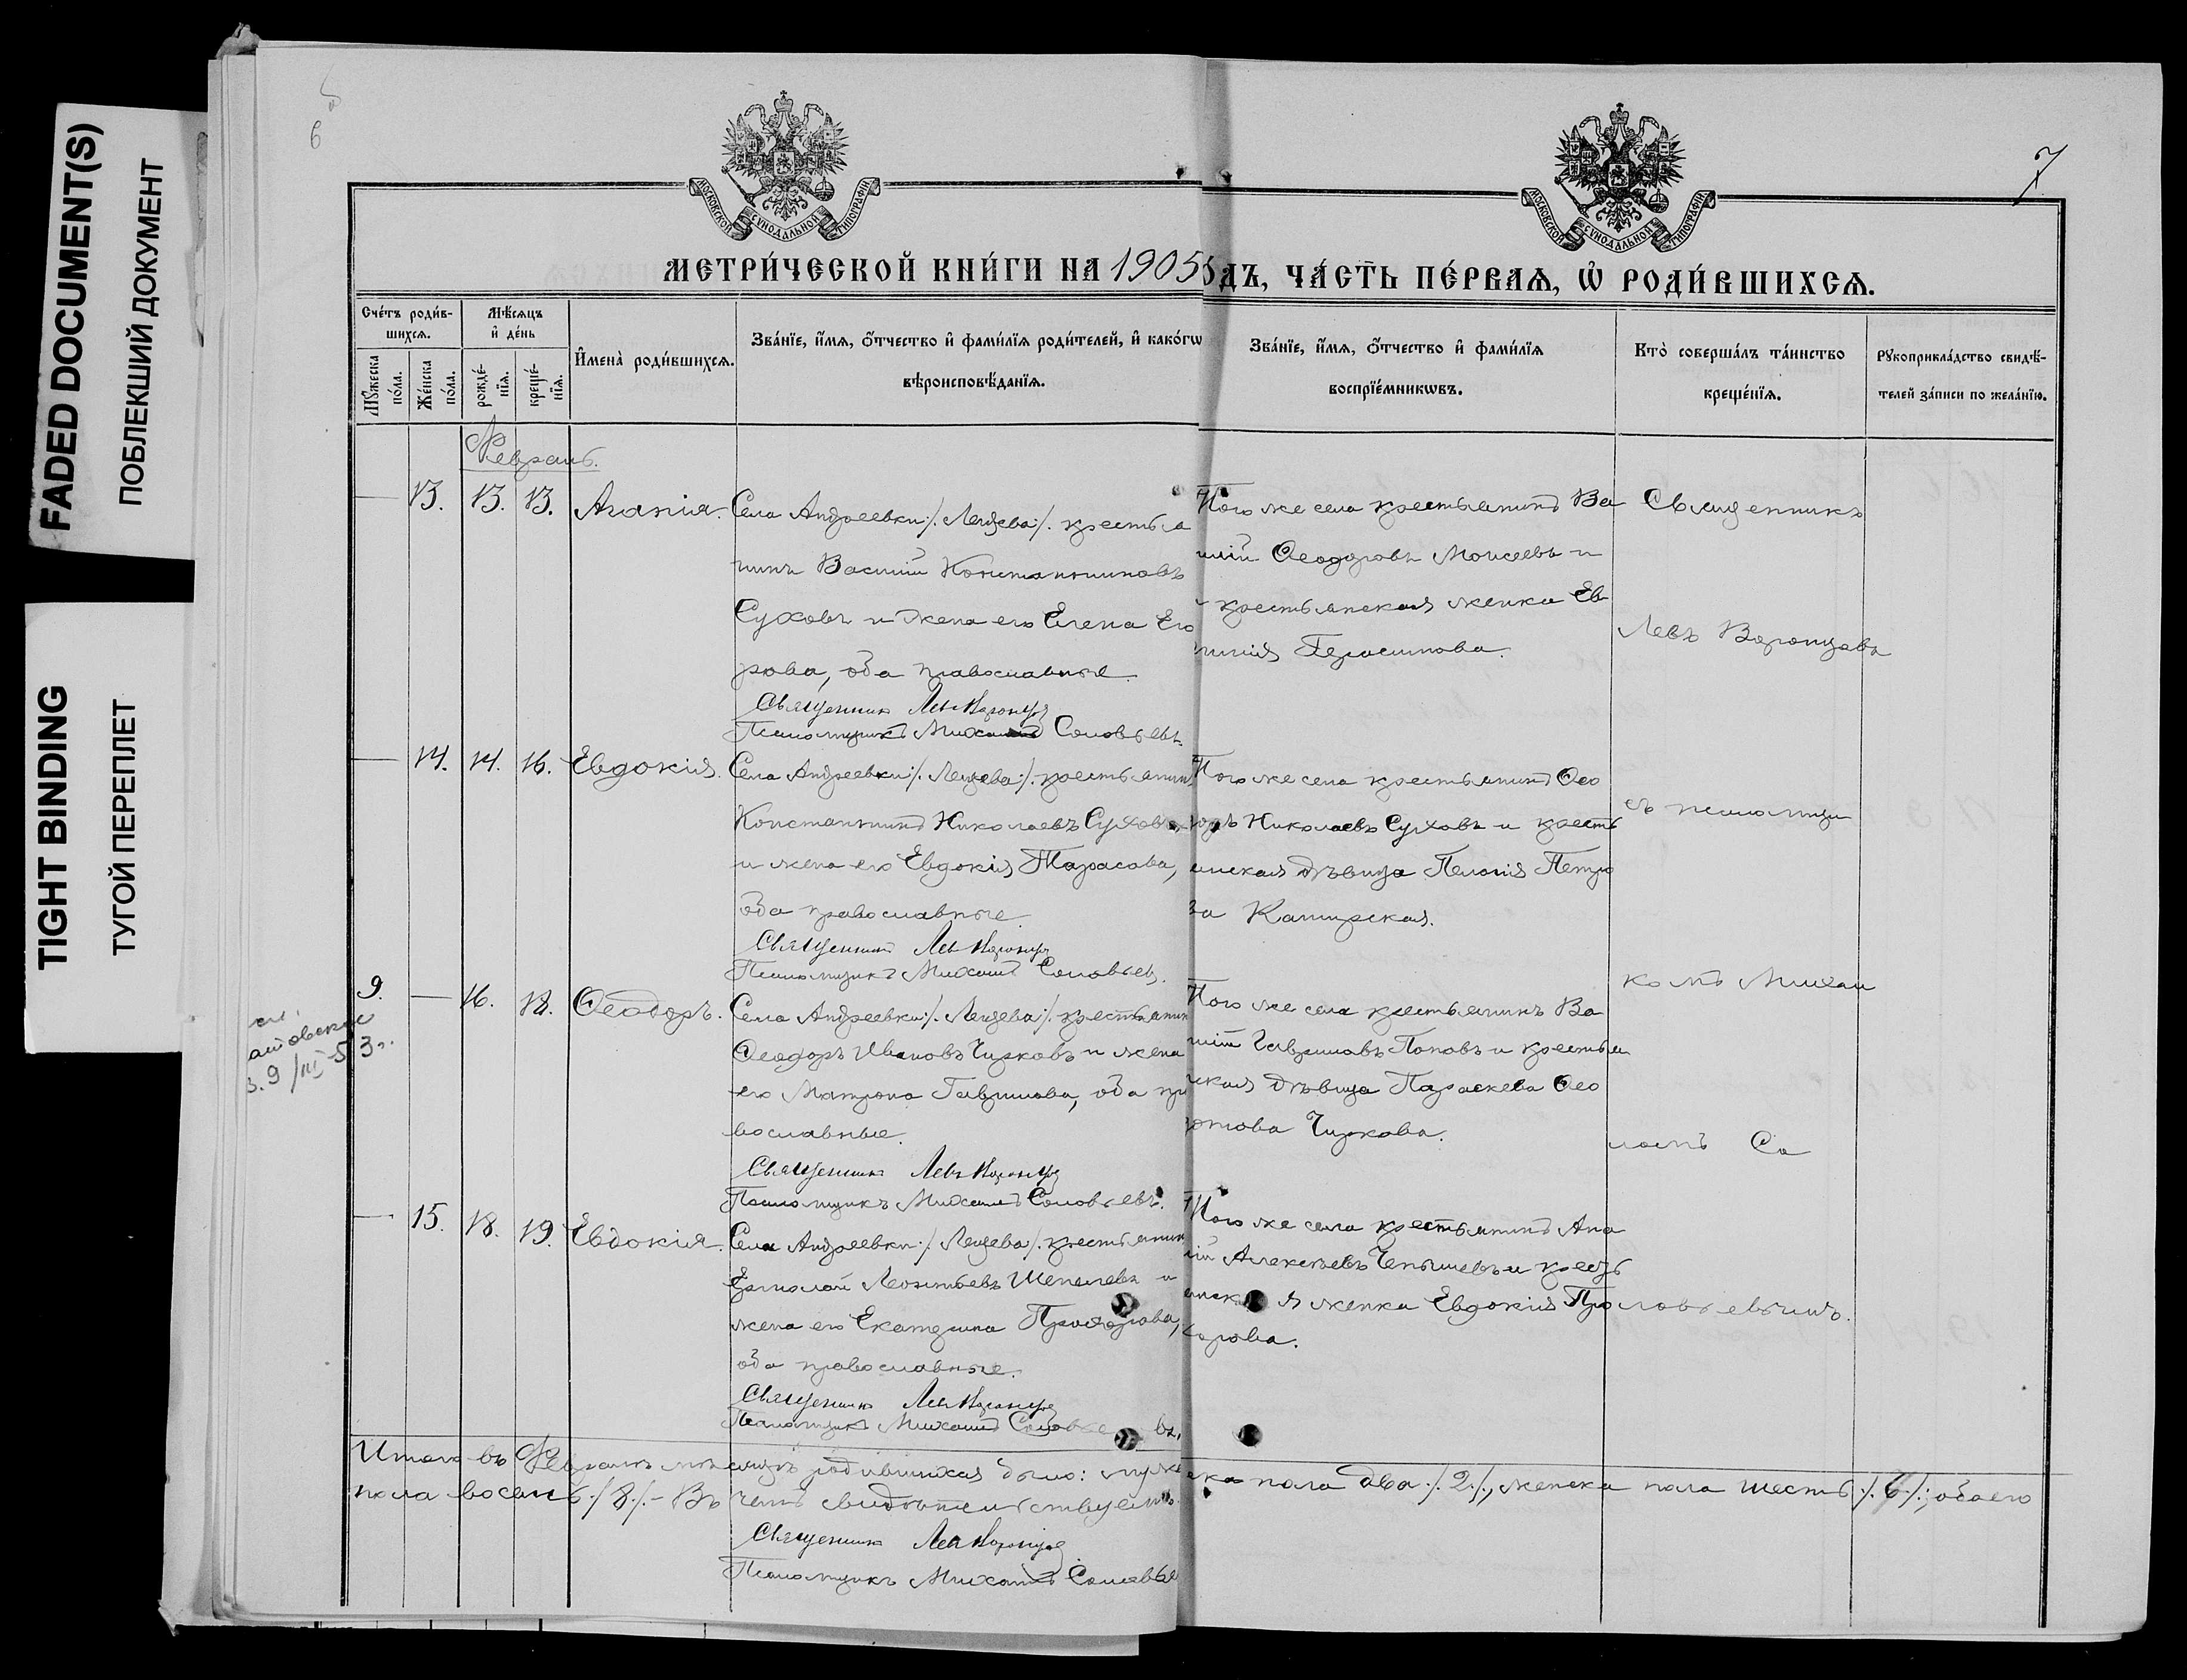 FADED DOCUMENT(S)
ПОБЛЕКШИЙ ДОКУМЕНТ
TIGHT BINDING
ТУГОЙ ПЕРЕПЛЕТ
6
7
МОСКОВСКОЙ СУНОДАЛЬНОЙ ТИПОГРАФІИ.
МОСКОВСКОЙ СУНОДАЛЬНОЙ ТИПОГРАФІИ.
МЕТРИ́ЧЕСКОЙ КНИ́ГИ НА 1905
ДЪ, ЧА́СТЬ ПЕ́РВАѦ, Ѡ҆ РОДИ́ВШИХСѦ.
Сче́тъ роди́в-
шихсѧ.
Мꙋ́жеска по́ла.
Же́нска по́ла.
Мѣ́сѧцъ
и҆ де́нь
рожде́-нїѧ.
креще́-нїѧ.
И҆мена̀ роди́вшихсѧ.
Зва́нїе, и҆́мѧ, ѻ҆́тчество и҆ фами́лїѧ роди́телей, и҆ како́гѡ
вѣроисповѣ́данїѧ.
Зва́нїе, и҆́мѧ, ѻ҆́тчество и҆ фами́лїѧ
воспрїе́мникѡвъ.
Кто̀ соверша́лъ та́инство
креще́нїѧ.
Рꙋкоприкла́дство свидѣ́-
телей за́писи по жела́нїю.
Февраль.
— 13. 13. 13. Агапія.
Села Андреевки /. Лещева /. крестья
нинъ Василій Константиновъ
Суховъ и жена его Елена Его
рова, оба православные.
Священникъ Левъ Воронцовъ
Псаломщикъ Михаилъ Соловьевъ
Того же села крестьянинъ Ва
илій Ѳеодоровъ Моисеевъ и
крестьянская женка Ев
Герасимова.
— 14. 14. 16. Евдокія.
Села Андреевки /. Лещева /. крестьянин
Константинъ Николаевъ Суховъ
и жена его Евдокія Тарасова,
оба православные
Священникъ Левъ Воронцовъ
Псаломщикъ Михаилъ Соловьевъ.
Того же села крестьянинъ Ѳео
доръ Николаевъ Суховъ и кресть
янская дѣвица Пелагія Петро
ва Каширская.
9. — 16. 18. Ѳеодоръ.
Села Андреевки /. Лещева /. крестьянин
Ѳеодоръ Ивановъ Чирковъ и жена
его Матрона Гаврилова, оба пр
вославные.
Священникъ Левъ Воронцовъ
Псаломщикъ Михаилъ Соловьевъ.
Того же села крестьянинъ Ва
илій Гавриловъ Поповъ и крестья
ская дѣвица Параскева Ѳео
Чиркова.
— 15. 18. 19. Евдокія.
Села Андреевки /. Лещева /. крестьянин
Ермолай Леонтьевъ Шепелевъ и
жена его Екатерина Прохорова,
оба православные.
Священникъ Левъ Воронцовъ
Псаломщикъ Михаилъ Соловьевъ.
Того же села крестьянинъ Ана
ій Алексѣевъ и кресть
янская женка Евдокія Про
хорова.
Священникъ
Левъ Воронцовъ
съ псаломщи
комъ Михаи
ломъ Со
ловьевымъ.
9/III-53г.
Итого въ Февралѣ мѣсяцѣ родившихся было: муже
ска пола два /. 2 /., женска пола шесть /. 6 /.; обоего
пола восемь /. 8 /. – Въ чемъ свидѣтельствуемъ.
Священникъ Левъ Воронцовъ
Псаломщикъ Михаилъ Соловье